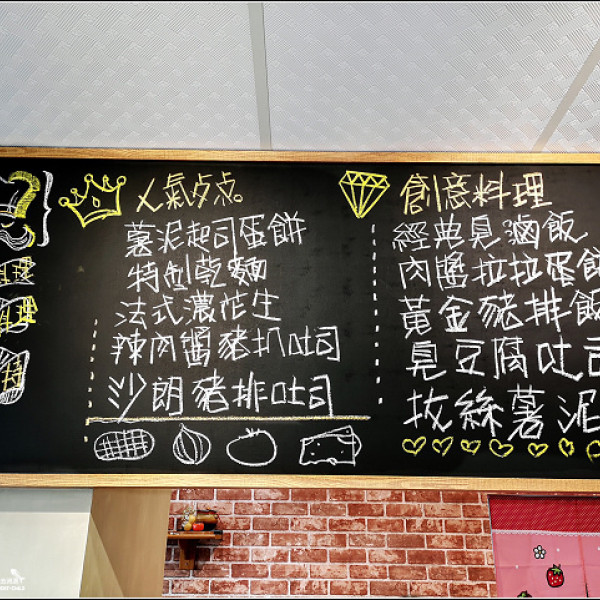 人氣夯点。
薯泥起司蛋餅
特製乾麵
法式濃花生
辣肉醬豬扒吐司
沙朗豬排吐司
創意料理
經典臭滷飯
肉醬拉拉蛋餅
黃金豬排飯
臭豆腐吐司
拔絲薯泥